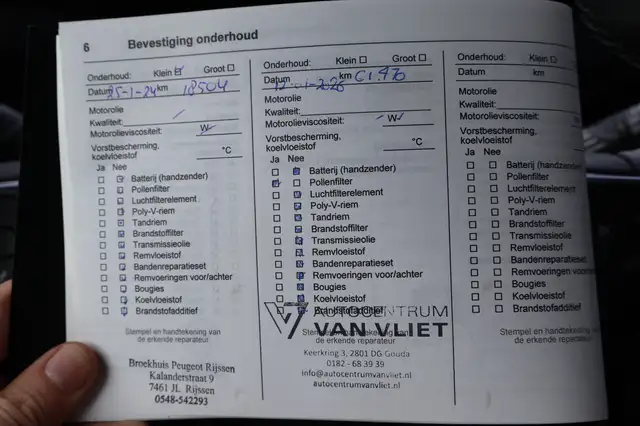 6 Bevestiging onderhoud
Onderhoud: Klein Groot
Datum 25-1-24 km 18504
Motorolie
Kwaliteit:
Motorolieviscositeit: W
Vorstbescherming,
koelvloeistof °C
Ja Nee
Batterij (handzender)
Pollenfilter
Luchtfilterelement
Poly-V-riem
Tandriem
Brandstoffilter
Transmissieolie
Remvloeistof
Bandenreparatieset
Remvoeringen voor/achter
Bougies
Koelvloeistof
Brandstofadditief
Stempel en handtekening van
de erkende reparateur
Broekhuis Peugeot Rijssen
Kalanderstraat 9
7461 JL Rijssen
0548-542293
Onderhoud: Klein Groot
Datum km
Motorolie
Kwaliteit:
Motorolieviscositeit: W
Vorstbescherming,
koelvloeistof °C
Ja Nee
Batterij (handzender)
Pollenfilter
Luchtfilterelement
Poly-V-riem
Tandriem
Brandstoffilter
Transmissieolie
Remvloeistof
Bandenreparatieset
Remvoeringen voor/achter
Bougies
Koelvloeistof
Brandstofadditief
AUTOCENTRUM
VAN VLIET
Stempel en handtekening van
de erkende reparateur
Keerkring 3, 2801 DG Gouda
0182 - 68 39 39
info@autocentrumvanvliet.nl
autocentrumvanvliet.nl
Onderhoud: Klein
Datum km
Motorolie
Kwaliteit:
Motorolieviscositeit:
Vorstbescherming,
koelvloeistof
Ja Nee
Batterij (handzender)
Pollenfilter
Luchtfilterelement
Poly-V-riem
Tandriem
Brandstoffilter
Transmissieolie
Remvloeistof
Bandenreparatieset
Remvoeringen voor/achter
Bougies
Koelvloeistof
Brandstofadditief
Stempel en handtekening
de erkende reparateur